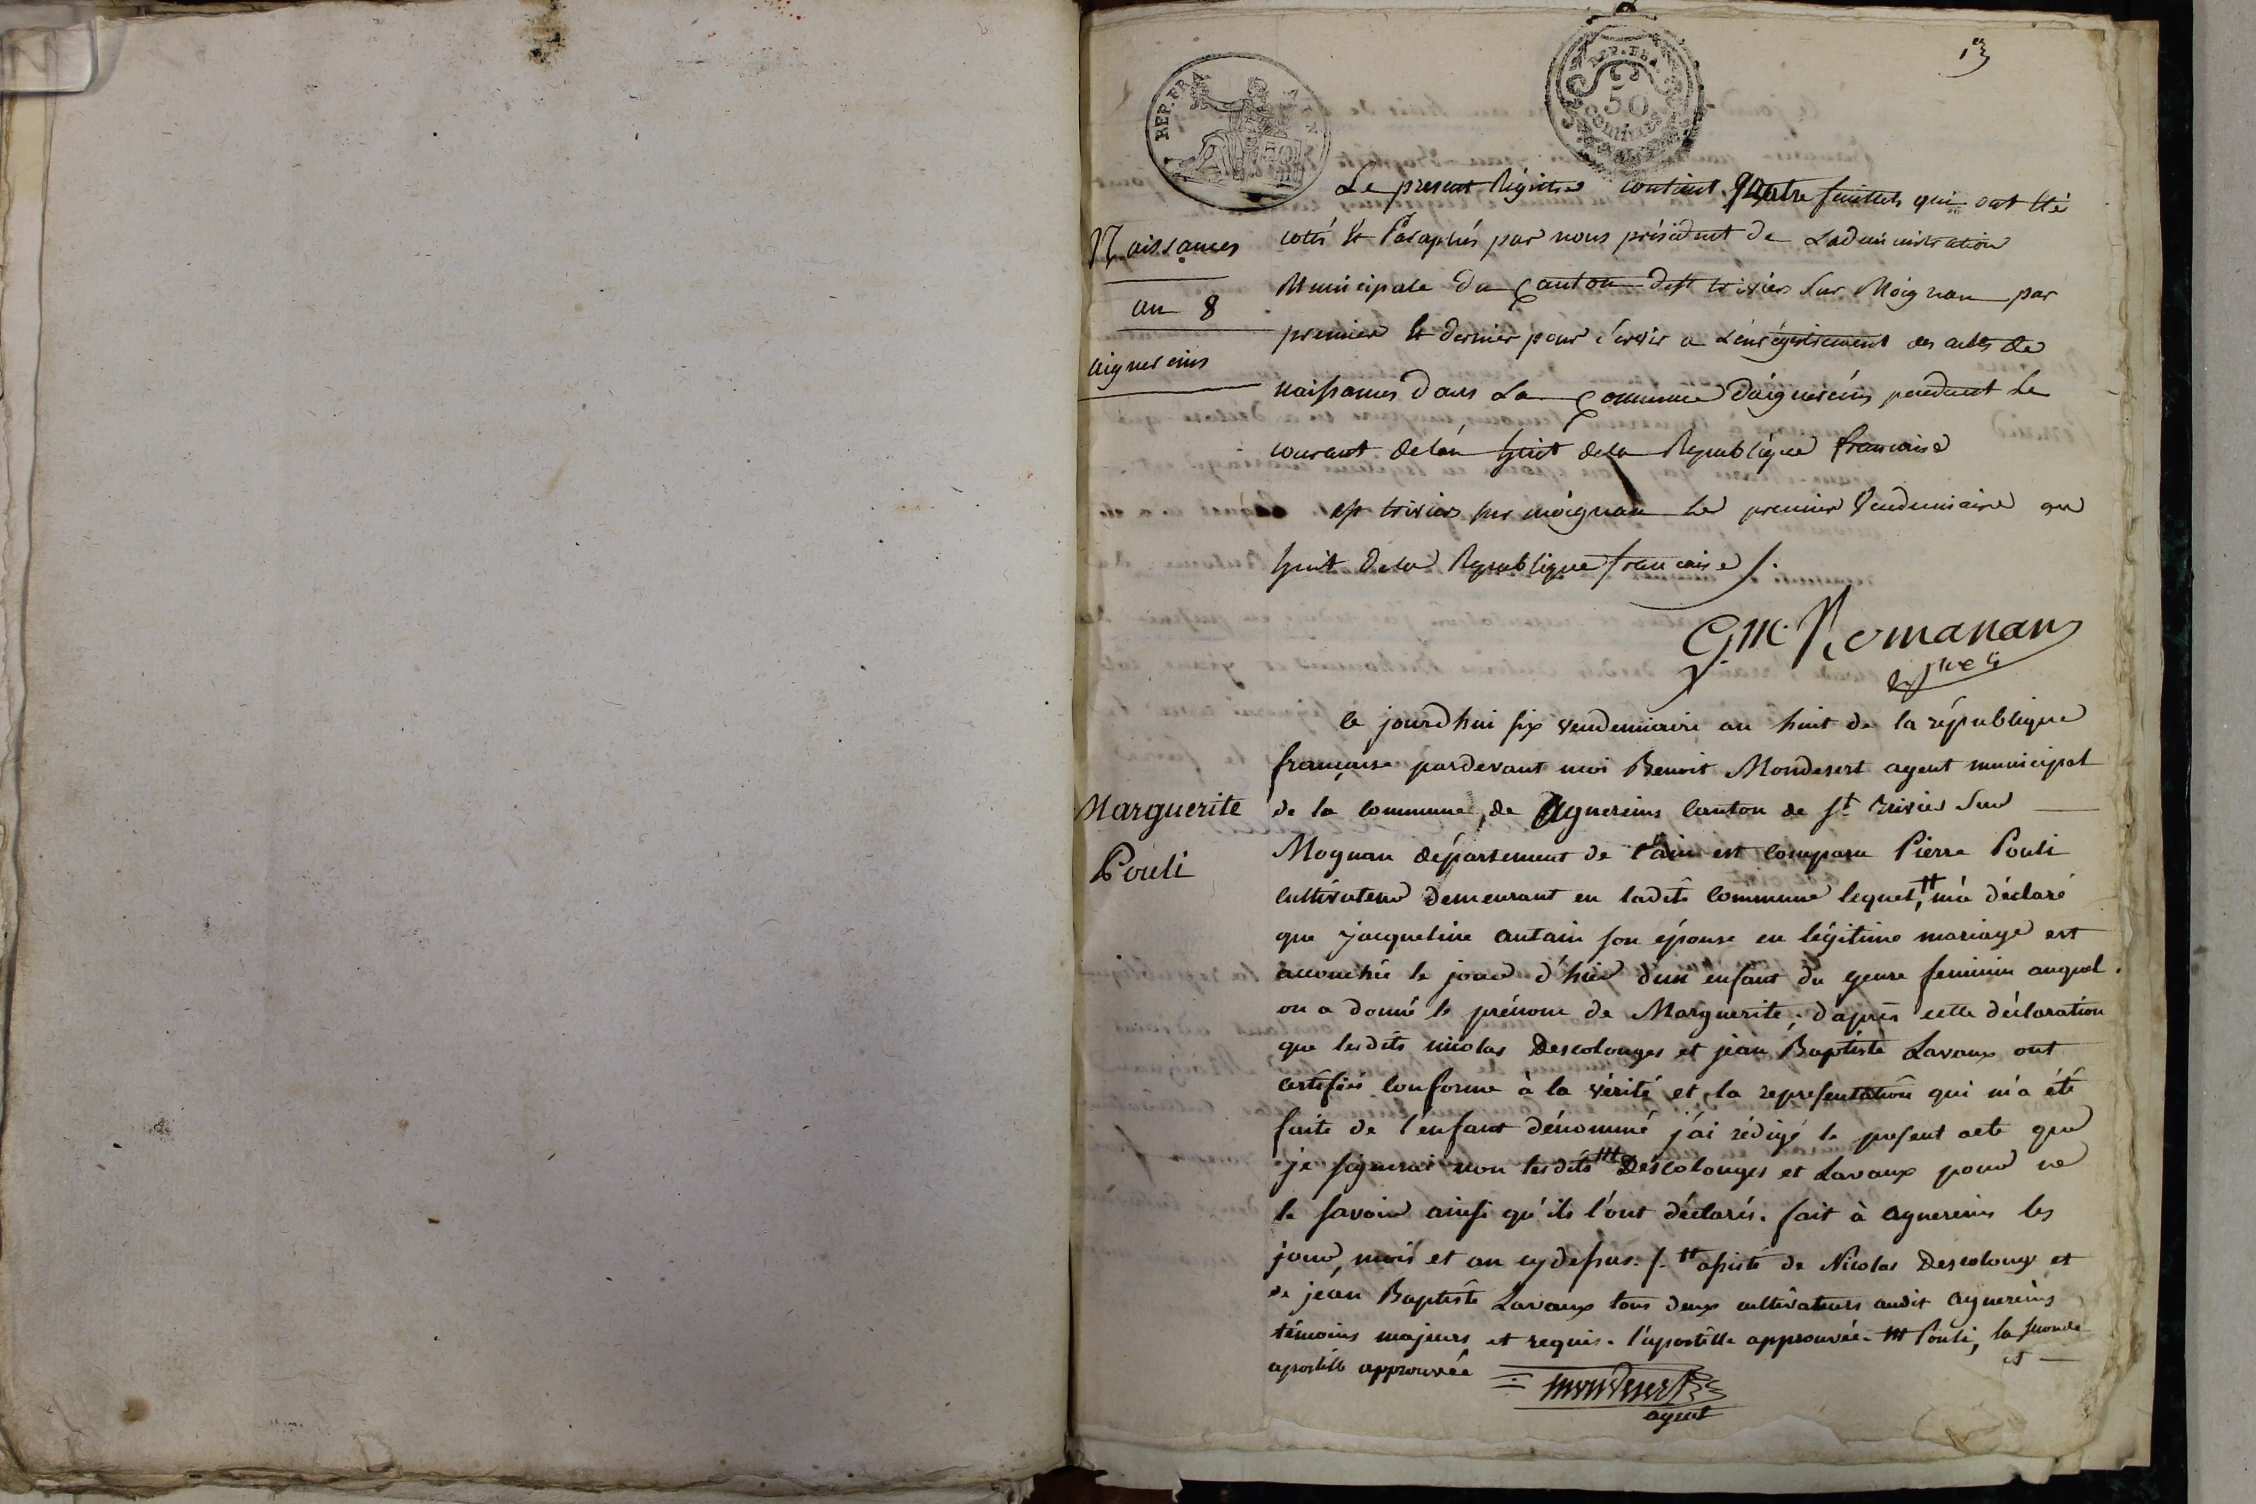 1er
REP. FRA.
REP. FRA.
50
centimes
Le present Régistre contient quatre feuillets qui ont été
cotés et Paraphés par nous président de Ladministration
Municipale du Canton dest trivier sur Moignan par
premier et dernier pour servir a Lenrégistrement des actes de
naissances dans La Commune daignereins pendant Le
courant delan huit dela Republique francaise
st trivier sur moignan Le premier Vendemiaire an
huit dela Republique francaise /.
Gme Romanans
Naissances
an 8
aignereins
ce jourdhui six vendemiaire an huit de la république
française pardevant moi Benoit Mondesert agent municipal
de la commune, de Agnereins canton de st trivier sur
Mognan département de l'ain est comparu Pierre Pouli
cultivateur demeurant en ladite commune lequel, tt m'a déclaré
que jacqueline autain son épouse en légitime mariage est
accouchée le jour d'hier d'un enfant du genre feminin auquel
on a donné le prénom de Marguerite; d'après cette déclaration
que lesdits nicolas Descolonges et jean Baptiste Lavaux ont
certifiée conforme à la vérité et la representation qui m'a été
faite de l'enfant dénommé j'ai rédigé le present acte que
je signerai non lesdits ttt Descolonges et Lavaux pour ne
le savoir ainsi qu'ils l'ont déclarés. fait à agnereins les
jour, mois et an cy dessus. /. tt assisté de Nicolas Descolonges et
de jean Baptiste Lavaux tous deux cultivateurs audit agnereins
témoins majeurs et requis. l'apostille approuvée. ttt Pouli, la seconde
apostille approuvée
mondesert
agent
Marguerite
Pouli